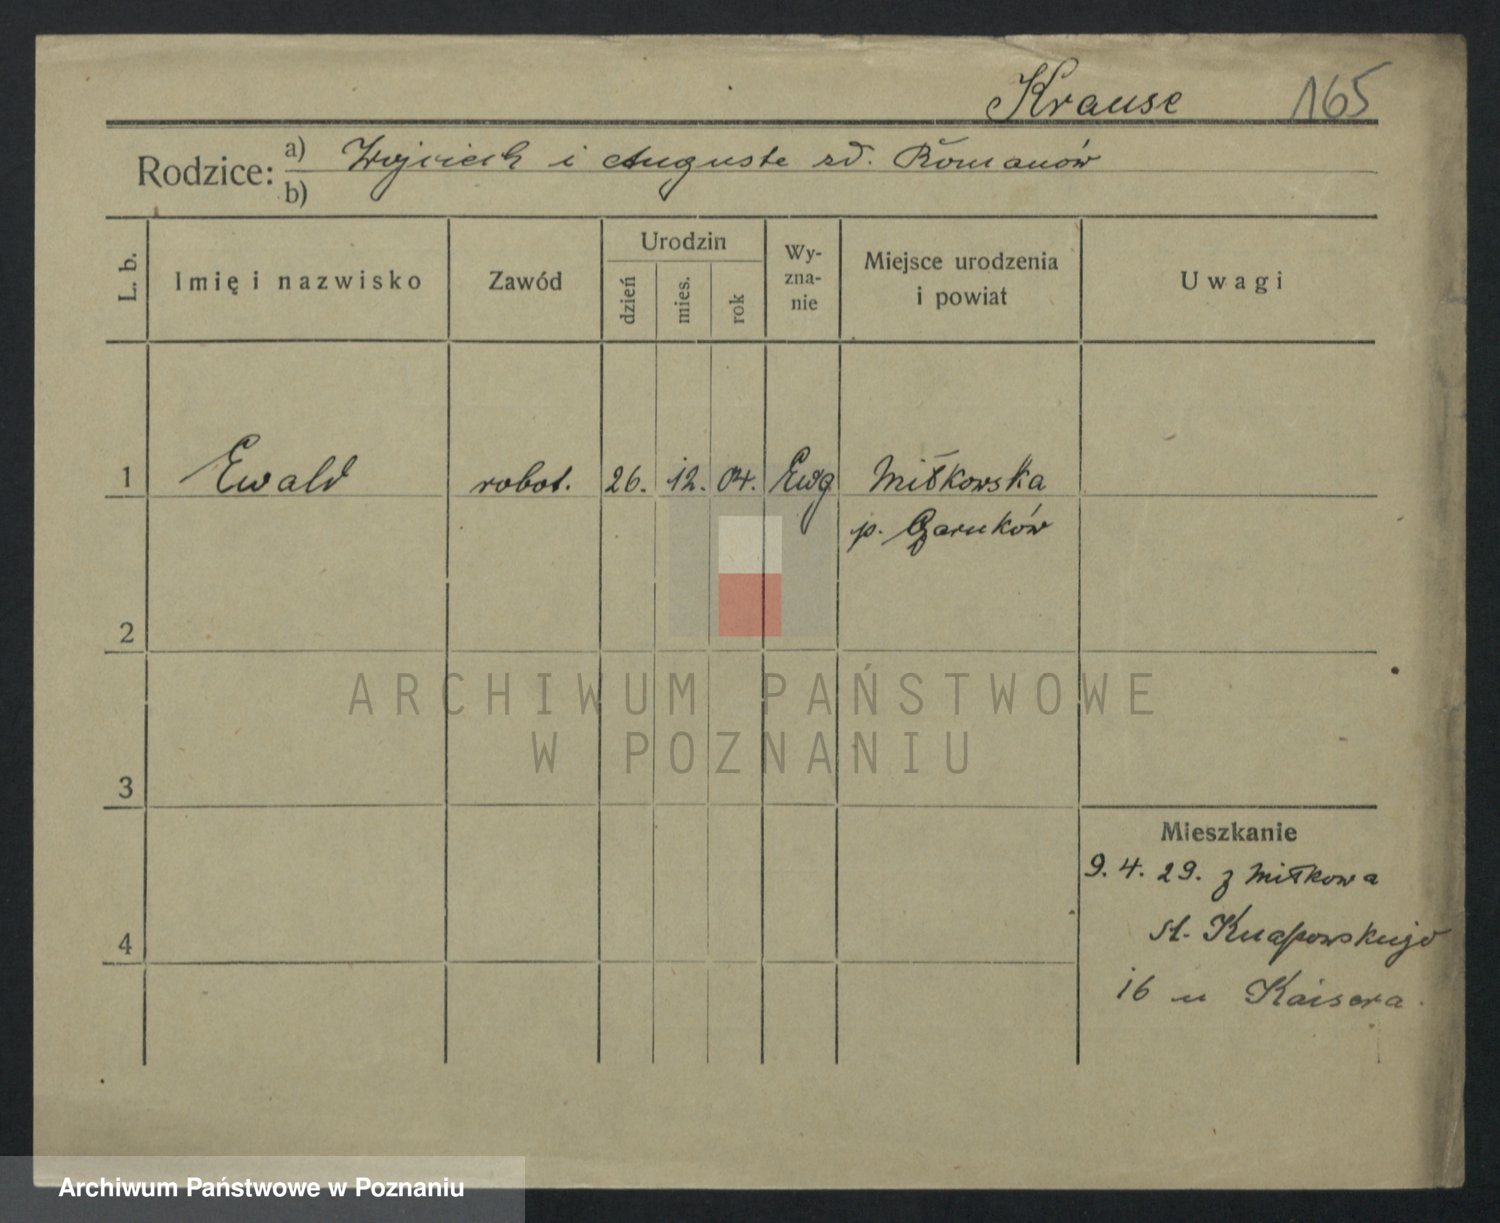 Krause 165
Rodzice: a) Wojciech i Auguste zd. Romanów
b)
L. b.
Imię i nazwisko
Zawód
Urodzin
dzień
mies.
rok
Wy-
zna-
nie
Miejsce urodzenia
i powiat
Uwagi
1 Ewald robot. 26. 12. 04. Ewg Miłkowska
p. Czarnków
2
3
4
Mieszkanie
9. 4. 29. z Miłkowa
st. Knapowskiego
16 u Kaisera.
ARCHIWUM PAŃSTWOWE
W POZNANIU
Archiwum Państwowe w Poznaniu